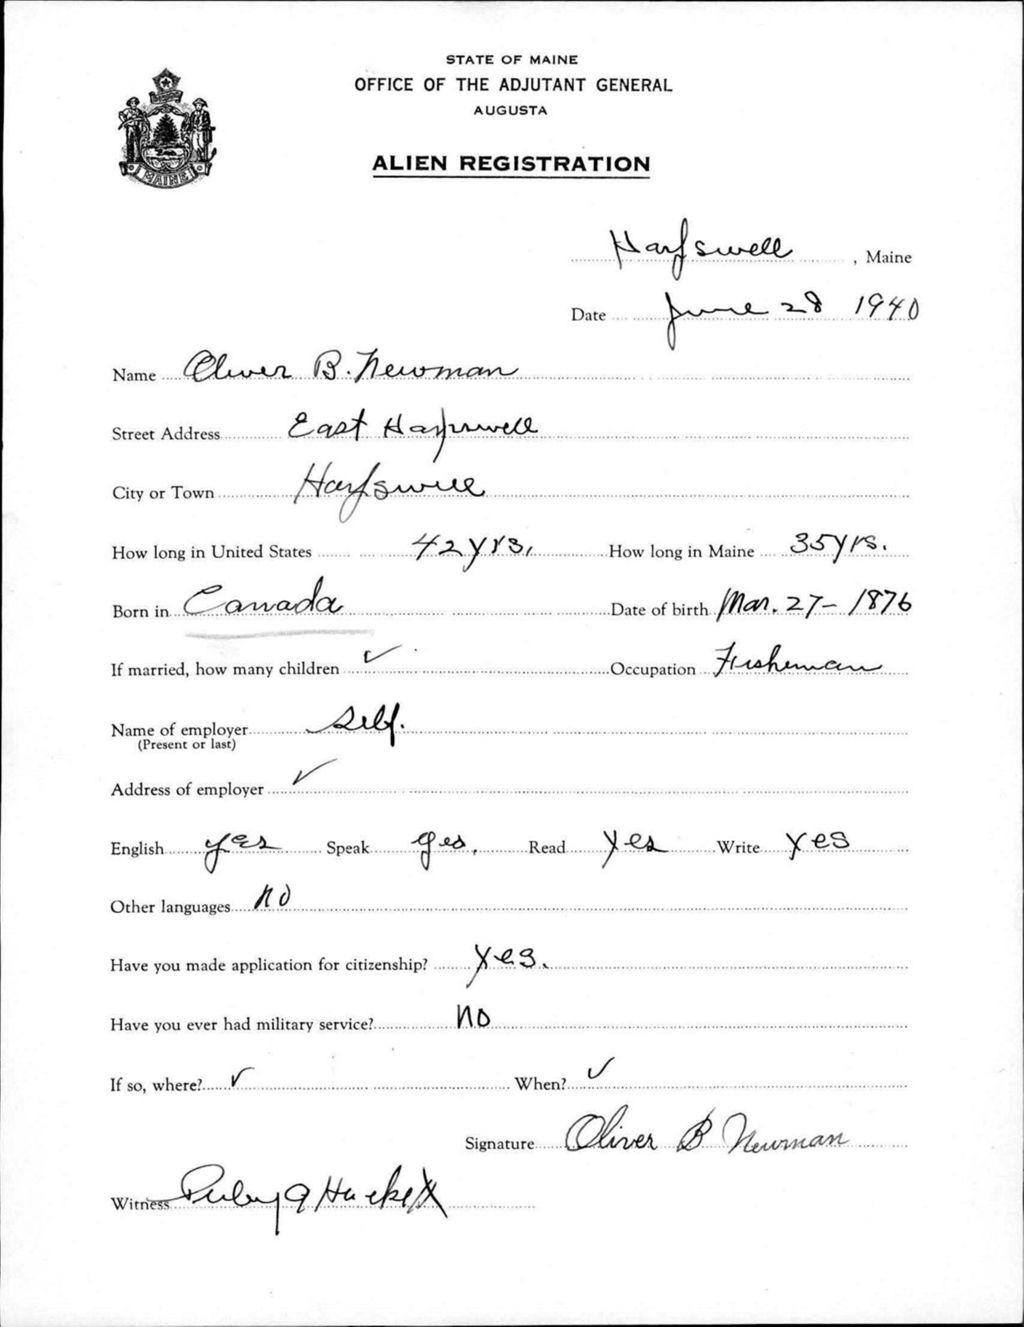 STATE OF MAINE
OFFICE OF THE ADJUTANT GENERAL
AUGUSTA
MAINE
ALIEN REGISTRATION
Harpswell, Maine
Date June 28 1940
Name Oliver B. Newman
Street Address East Harpswell
City or Town Harpswell
How long in United States 42 yrs, How long in Maine 35 yrs.
Born in Canada Date of birth Mar. 27 - 1876
If married, how many children ✓ Occupation Fisherman
Name of employer Self.
(Present or last)
Address of employer ✓
English yes Speak yes, Read Yes Write Yes
Other languages no
Have you made application for citizenship? Yes.
Have you ever had military service? no
If so, where? ✓ When? ✓
Signature Oliver B Newman
Witness Ruby A Hackett